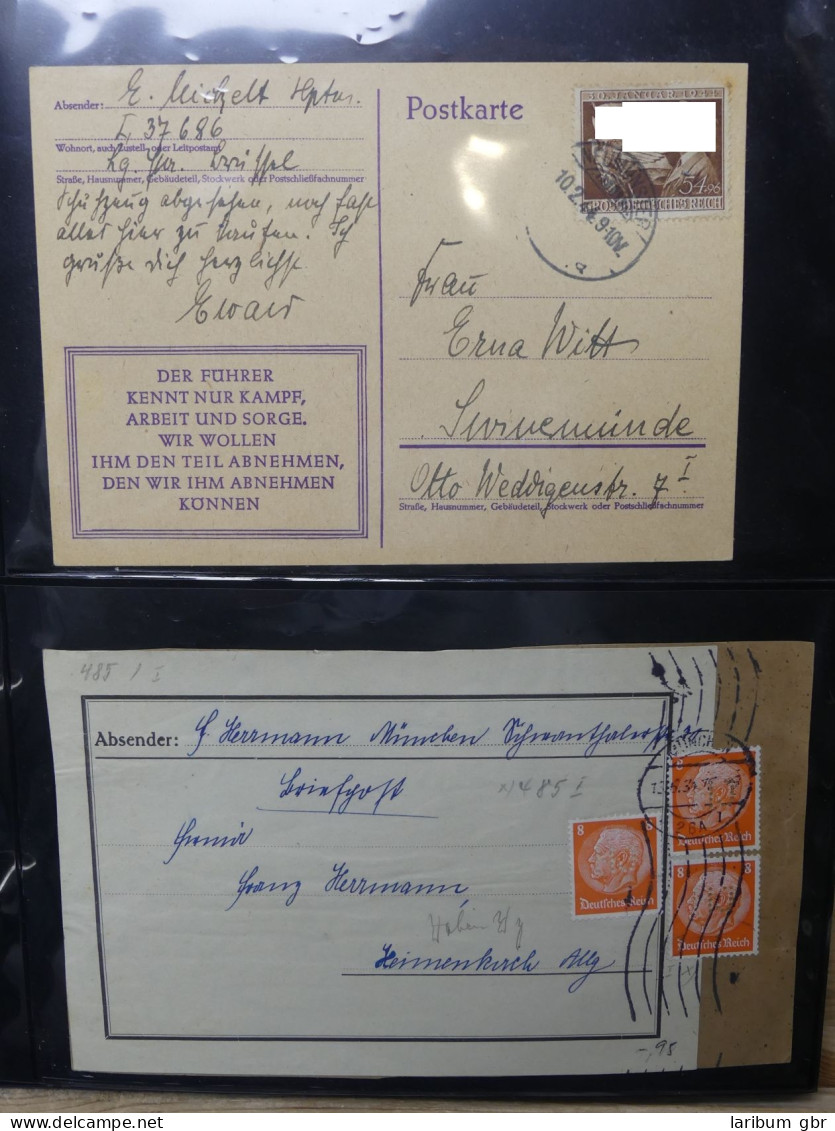 Absender: E. Michelt Hptm.
L 37686
Wohnort, auch Zustell- oder Leitpostamt
Lg. Brüssel
Straße, Hausnummer, Gebäudeteil, Stockwerk oder Postschließfachnummer
abgesehen, noch fast
alles hier zu kaufen. Ich
grüße Dich herzlichst
Ewald
DER FÜHRER
KENNT NUR KAMPF,
ARBEIT UND SORGE.
WIR WOLLEN
IHM DEN TEIL ABNEHMEN,
DEN WIR IHM ABNEHMEN
KÖNNEN
Postkarte
30. JANUAR 1944
54+96
DEUTSCHES REICH
10.2.44.9-10V.
a
Frau
Erna Witt
Swinemünde
Otto Weddigenstr. 7 I
Straße, Hausnummer, Gebäudeteil, Stockwerk oder Postschließfachnummer
485 / I
Absender: F Herrmann München Schwanthalerstr
Briefpost
x) 485 I
Firma
Franz Herrmann,
Heimenkirch Allg
8 8
Deutsches Reich
MÜNCHEN
8
Deutsches Reich
8 8
Deutsches Reich
-,95
laribum gbr